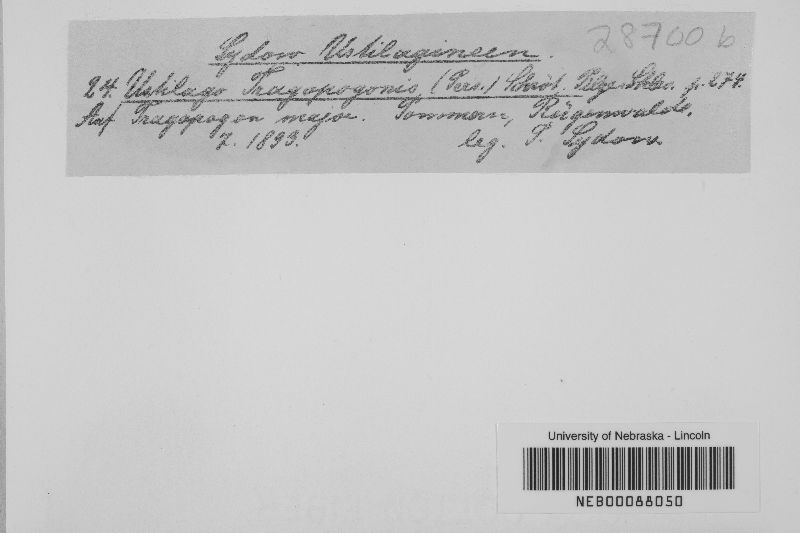 28700b
Sydow Ustilagineen.
24. Ustilago Tragopogonis (Pers.) Schröt. Pilze Schles. p. 274.
Auf Tragopogon major. Pommern, Rügenwalde.
7. 1893. leg. P. Sydow.
University of Nebraska - Lincoln
NEB00088050